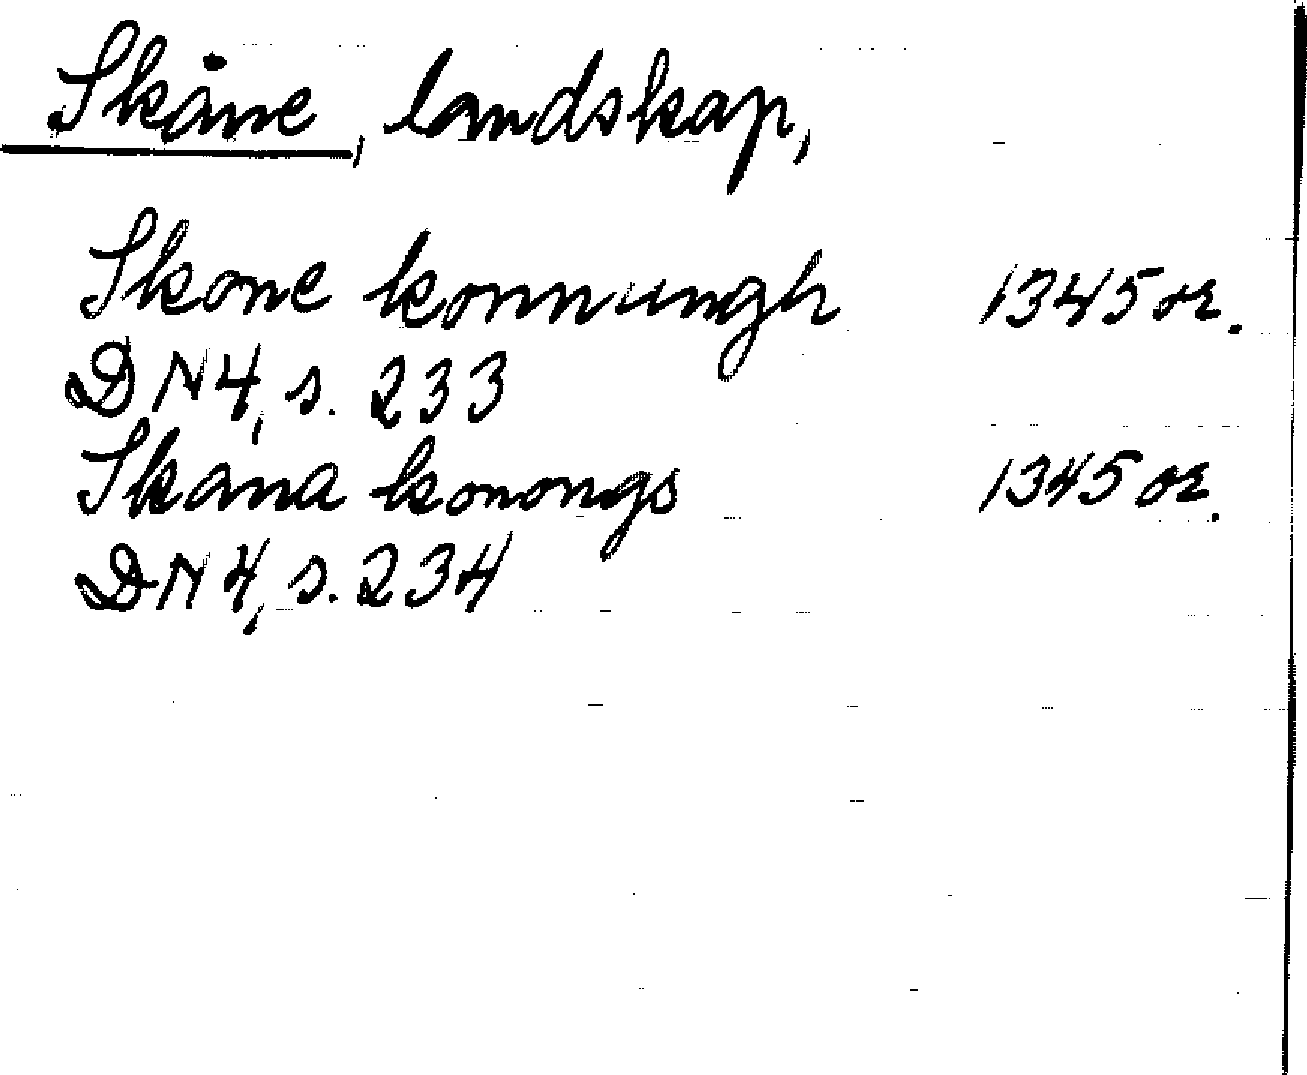 Skåne, landskap,
Skone konnungh 1345 or.
DN4, s. 233
Skana konongs 1345 or.
DN4, s. 234